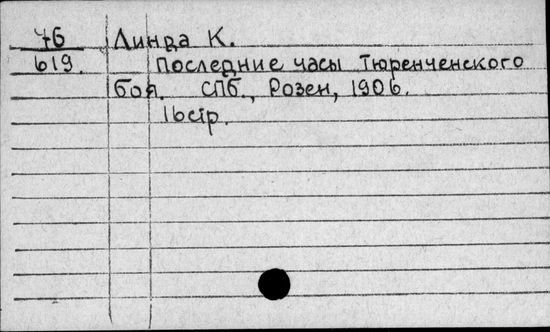 76 Линда К.
619. Последние часы Тюренченского
боя. СПб., Розен, 1906.
16 стр.